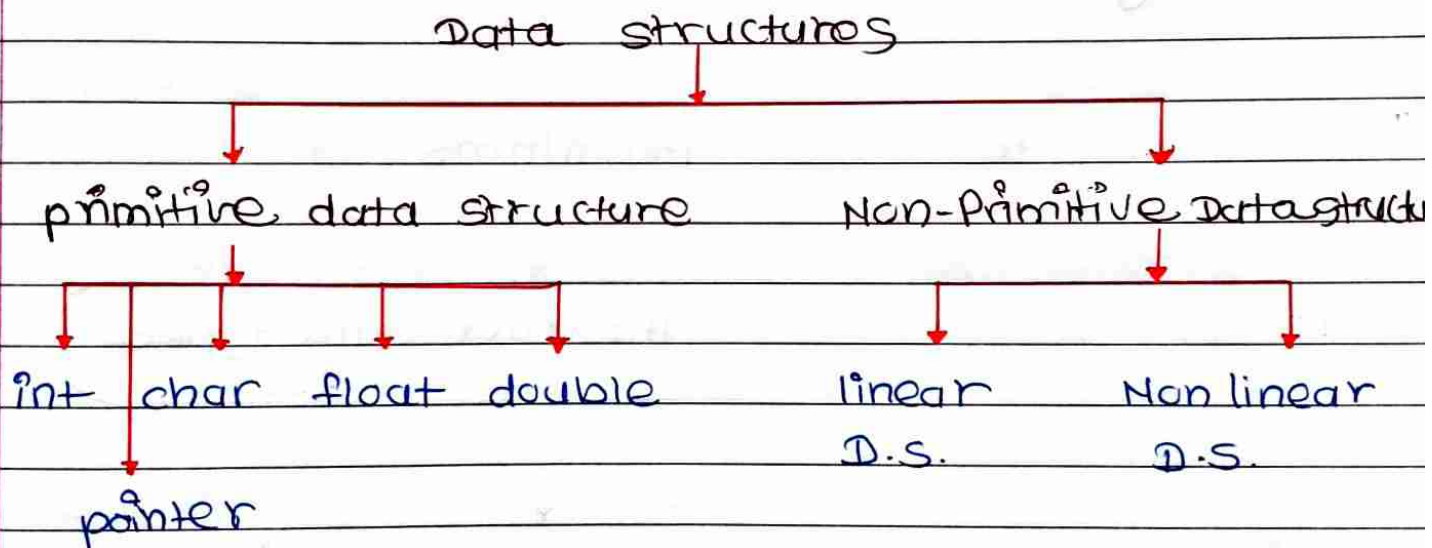 Data structures
primitive data structure Non-Primitive Datastructu
int char float double linear Non linear
D.S. D.S.
pointer